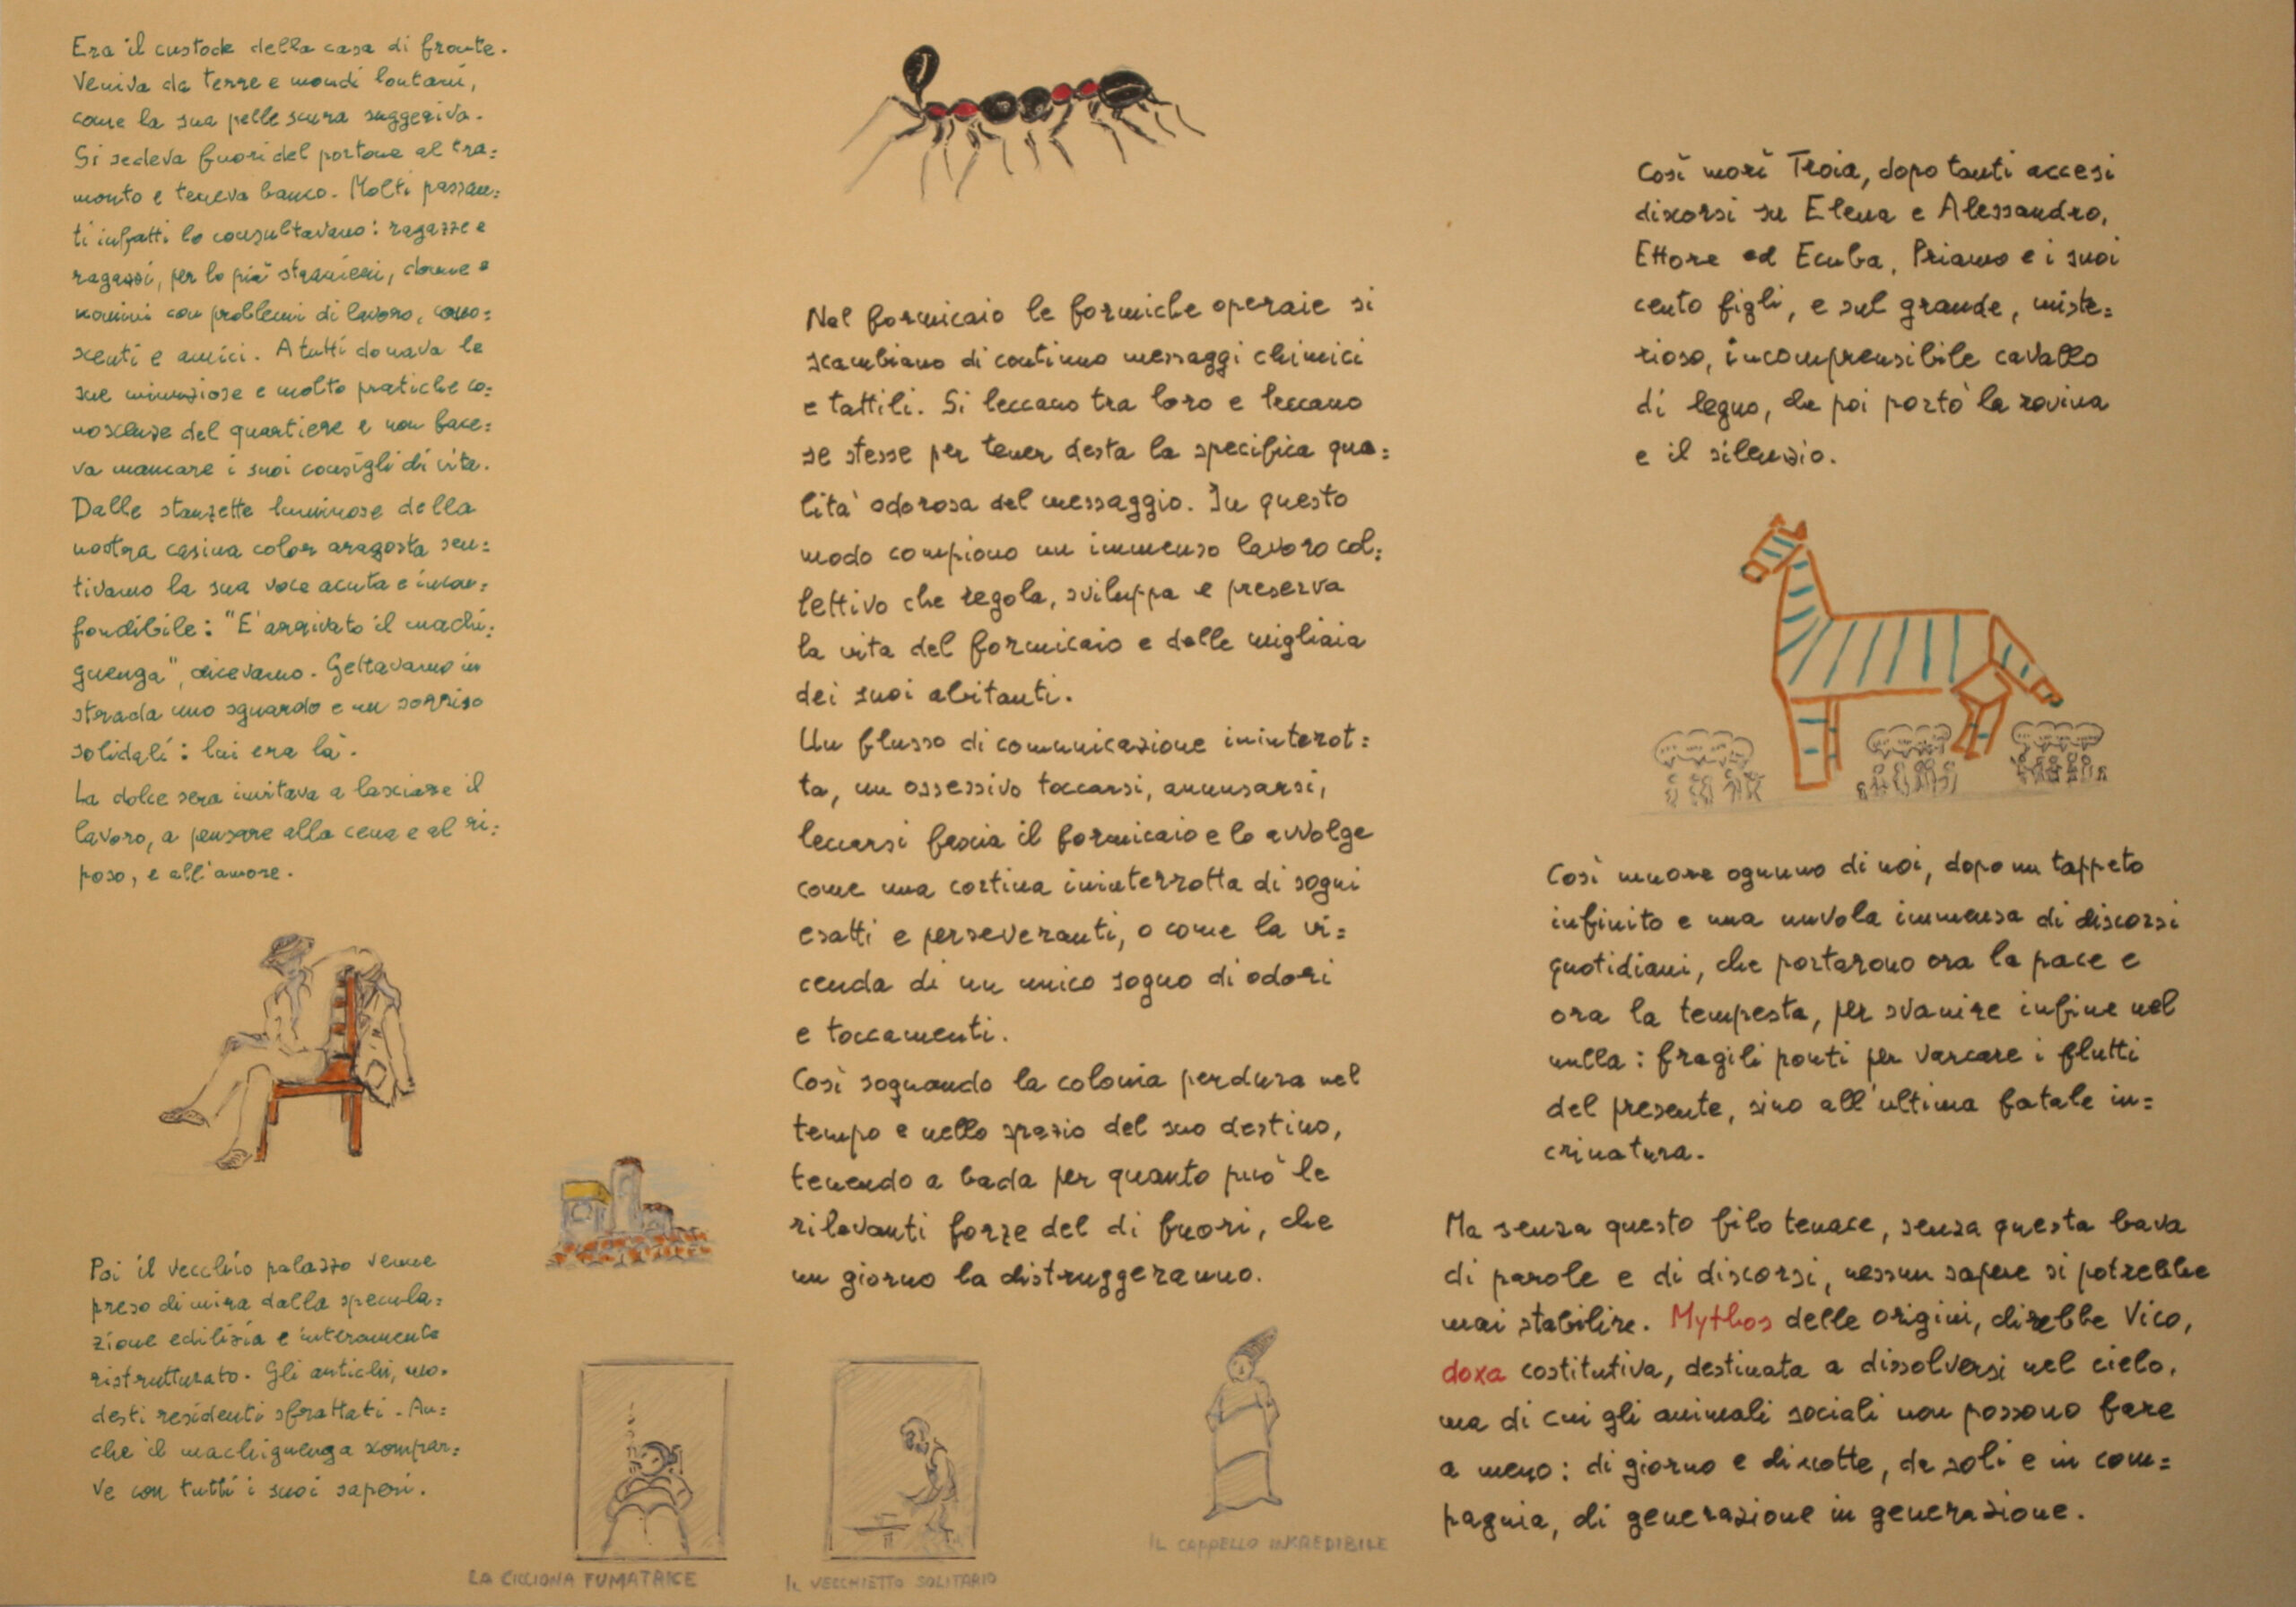 Era il custode della casa di fronte.
Veniva da terre e mondi lontani,
come la sua pelle scura suggeriva.
Si sedeva fuori del portone al tra=
monto e teneva banco. Molti passan=
ti infatti lo consultavano: ragazze e
ragazzi, per lo più stranieri, donne e
uomini con problemi di lavoro, cono=
scenti e amici. A tutti donava le
sue minuziose e molto pratiche co=
noscenze del quartiere e non face=
va mancare i suoi consigli di vita.
Dalle stanzette luminose della
nostra casina color aragosta sen=
tivamo la sua voce acuta e incon=
fondibile: "E' arrivato il machi=
guenga", dicevamo. Gettavamo in
strada uno sguardo e un sorriso
solidali: lui era là.
La dolce sera invitava a lasciare il
lavoro, a pensare alla cena e al ri=
poso, e all'amore.
Poi il vecchio palazzo venne
preso di mira dalla specula=
zione edilizia e interamente
ristrutturato. Gli antichi, mo=
desti residenti sfrattati. An=
che il machiguenga scompar=
ve con tutti i suoi saperi.
LA CICCIONA FUMATRICE
IL VECCHIETTO SOLITARIO
Nel formicaio le formiche operaie si
scambiano di continuo messaggi chimici
e tattili. Si leccano tra loro e leccano
se stesse per tener desta la specifica qua=
lità odorosa del messaggio. In questo
modo compiono un immenso lavoro col=
lettivo che regola, sviluppa e preserva
la vita del formicaio e delle migliaia
dei suoi abitanti.
Un flusso di comunicazione ininterot=
ta, un ossessivo toccarsi, annusarsi,
leccarsi fascia il formicaio e lo avvolge
come una cortina ininterrotta di sogni
esatti e perseveranti, o come la vi=
cenda di un unico sogno di odori
e toccamenti.
Così sognando la colonia perdura nel
tempo e nello spazio del suo destino,
tenendo a bada per quanto può le
rilevanti forze del di fuori, che
un giorno la distruggeranno.
IL CAPPELLO INCREDIBILE
Così morì Troia, dopo tanti accesi
discorsi su Elena e Alessandro,
Ettore ed Ecuba, Priamo e i suoi
cento figli, e sul grande, miste=
rioso, incomprensibile cavallo
di legno, che poi portò la rovina
e il silenzio.
Così muore ognuno di noi, dopo un tappeto
infinito e una nuvola immensa di discorsi
quotidiani, che portarono ora la pace e
ora la tempesta, per svanire infine nel
nulla: fragili ponti per varcare i flutti
del presente, sino all'ultima fatale in=
crinatura.
Ma senza questo filo tenace, senza questa bava
di parole e di discorsi, nessun sapere si potrebbe
mai stabilire. Mythos delle origini, direbbe Vico,
doxa costitutiva, destinata a dissolversi nel cielo,
ma di cui gli animali sociali non possono fare
a meno: di giorno e di notte, da soli e in com=
pagnia, di generazione in generazione.